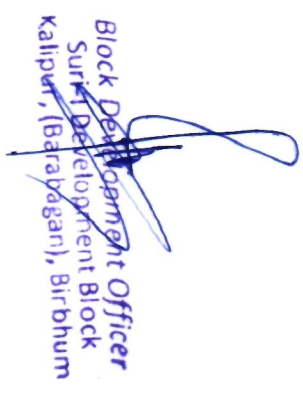 Block Development Officer
Suri-I Development Block
Kalipur, (Barabagan), Birbhum